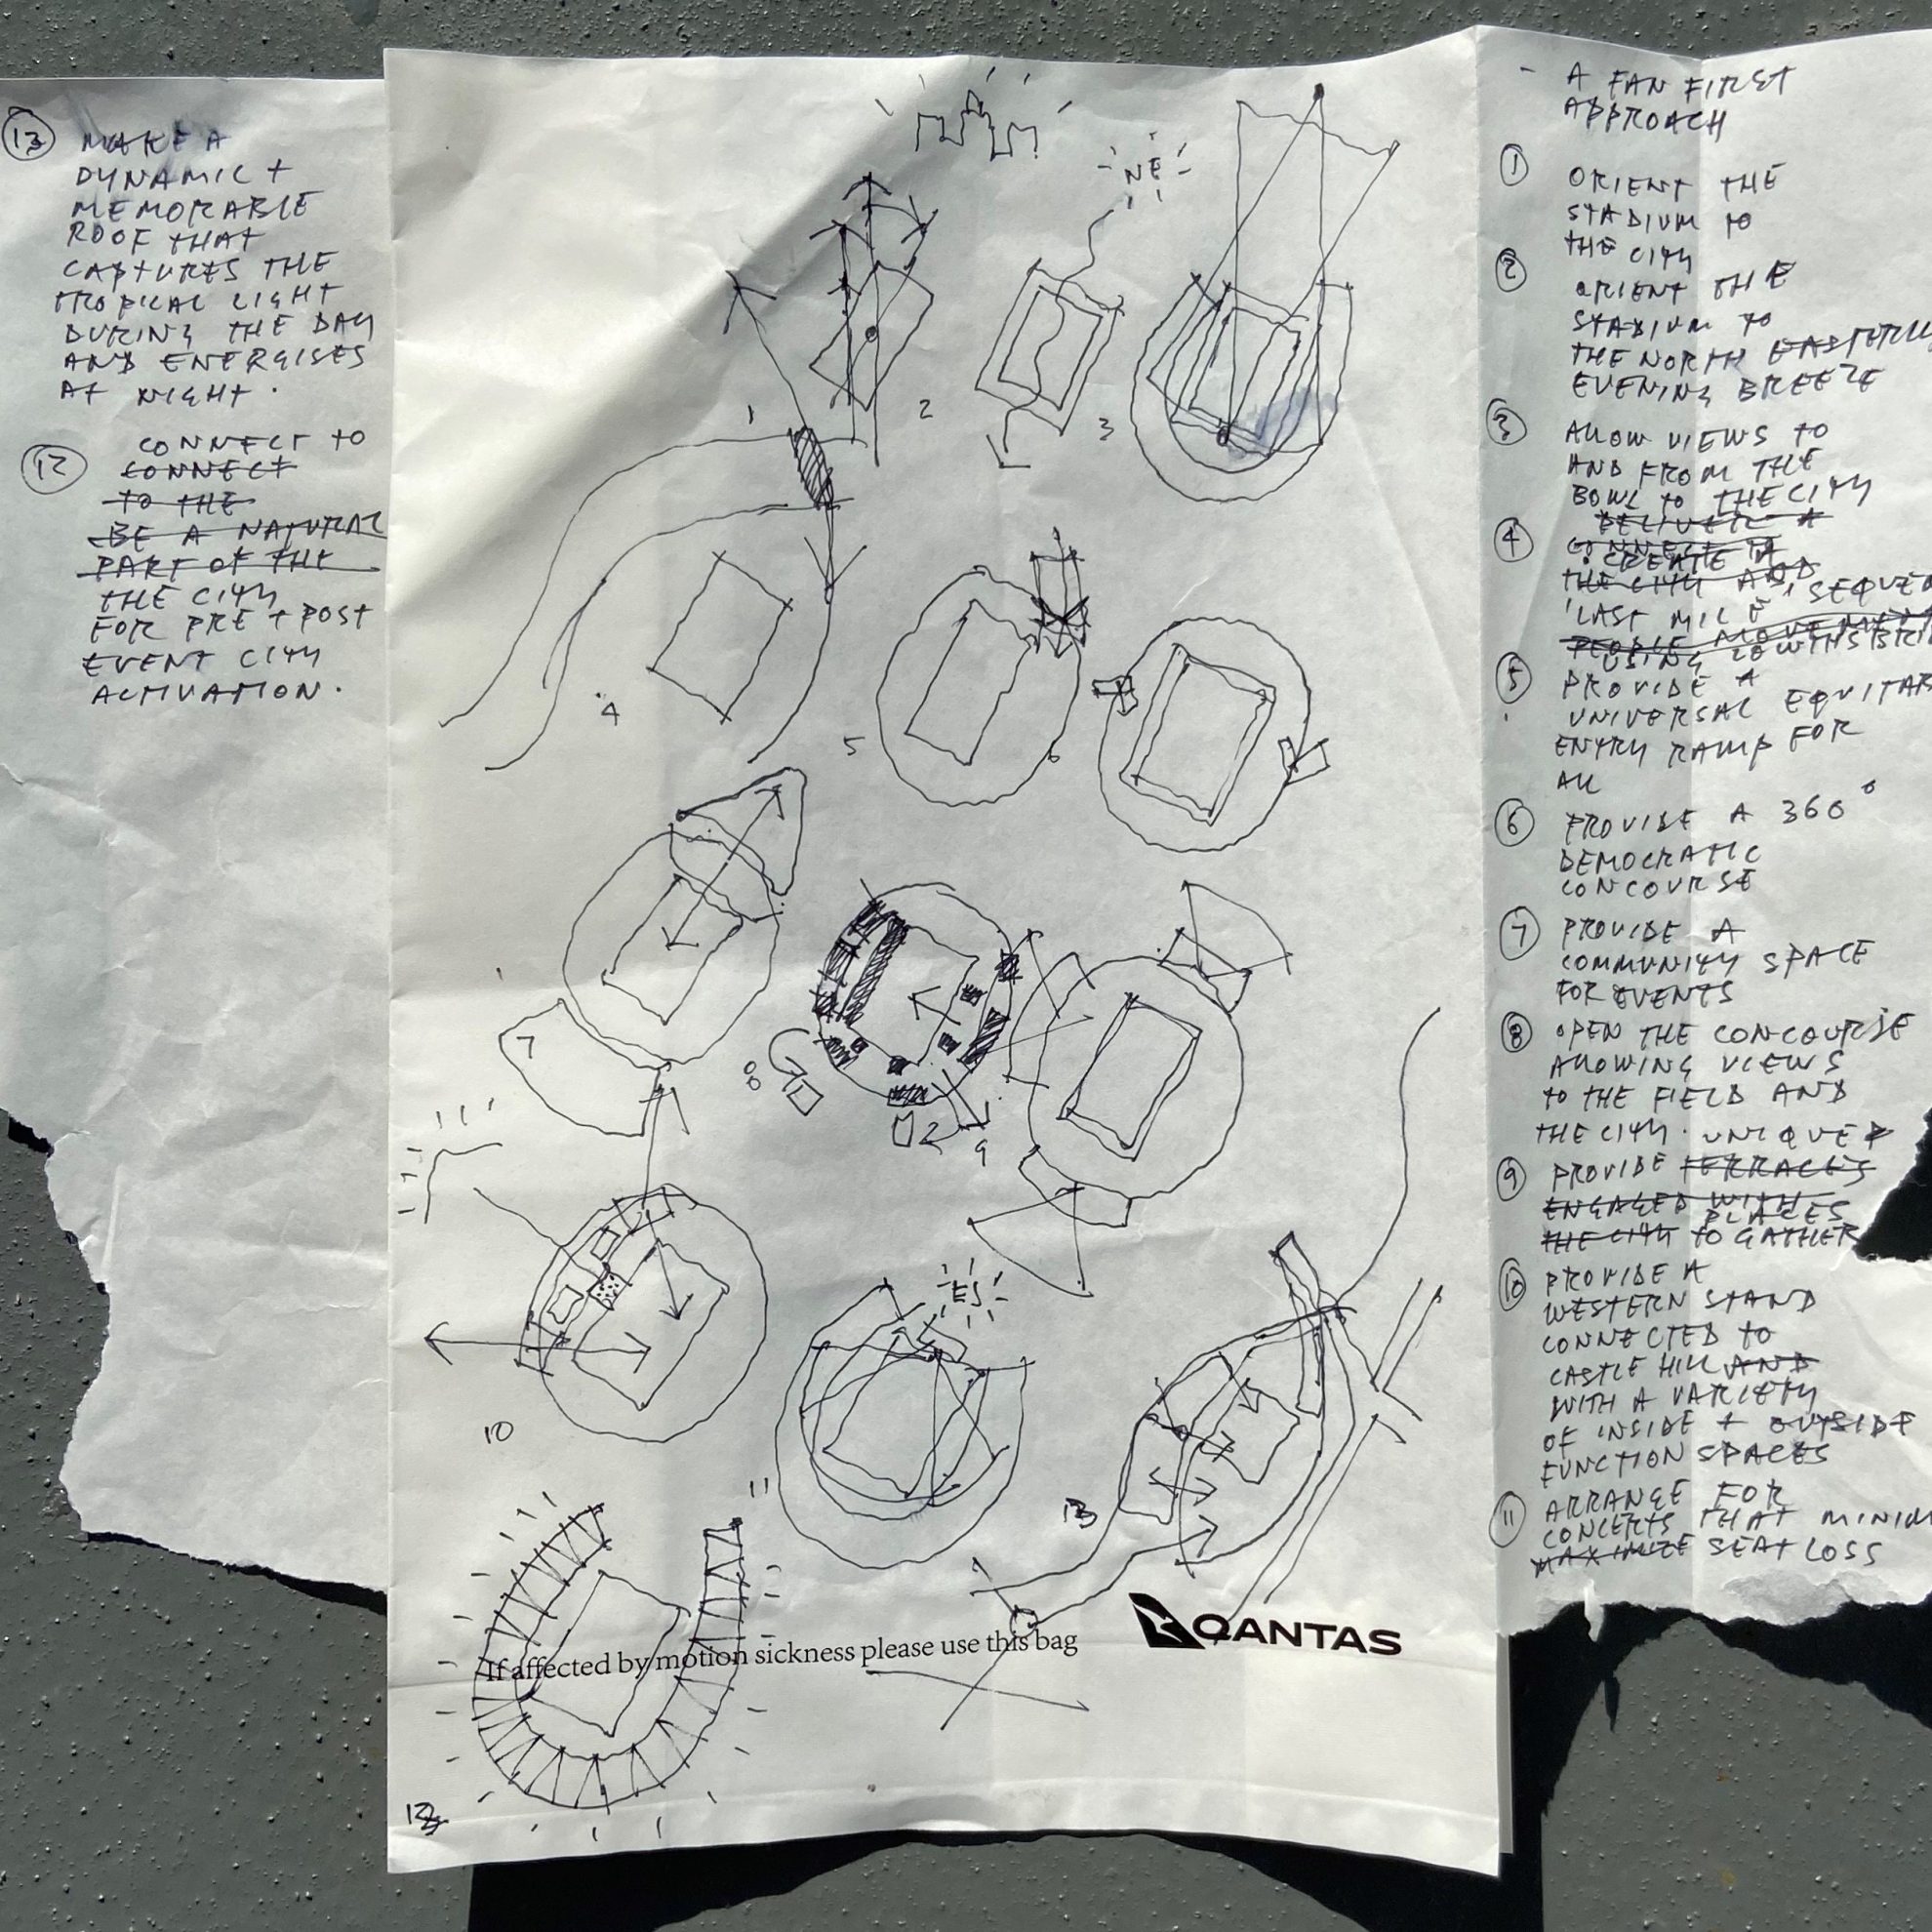 13 MAKE A
DYNAMIC +
MEMORABLE
ROOF THAT
CAPTURES THE
TROPICAL LIGHT
DURING THE DAY
AND ENERGISES
AT NIGHT.
12 CONNECT TO
CONNECT
TO THE
BE A NATURAL
PART OF THE
THE CITY
FOR PRE + POST
EVENT CITY
ACTIVATION.
NE
1
2
3
4
5
6
7
8
9
10
ES
11
13
12
If affected by motion sickness please use this bag
QANTAS
- A FAN FIRST
APPROACH
1 ORIENT THE
STADIUM TO
THE CITY
2 ORIENT THE
STADIUM TO
THE NORTH EASTERLY
EVENING BREEZE
3 ALLOW VIEWS TO
AND FROM THE
BOWL TO THE CITY
DELIVER A
4 CONNECT TO
CREATE A
THE CITY AND
'LAST MILE' SEQUE
PEOPLE MOVEMENT
USING
5 PROVIDE A
UNIVERSAL EQUITAB
ENTRY RAMP FOR
ALL
6 PROVIDE A 360°
DEMOCRATIC
CONCOURSE
7 PROVIDE A
COMMUNITY SPACE
FOR EVENTS
8 OPEN THE CONCOURSE
ALLOWING VIEWS
TO THE FIELD AND
THE CITY. UNIQUE
9 PROVIDE TERRACES
ENGAGED WITH
PLACES
THE CITY TO GATHER
10 PROVIDE A
WESTERN STAND
CONNECTED TO
CASTLE HILL AND
WITH A VARIETY
OF INSIDE + OUTSIDE
FUNCTION SPACES
11 ARRANGE FOR
CONCERTS THAT MINIM
MAXIMIZE SEAT LOSS